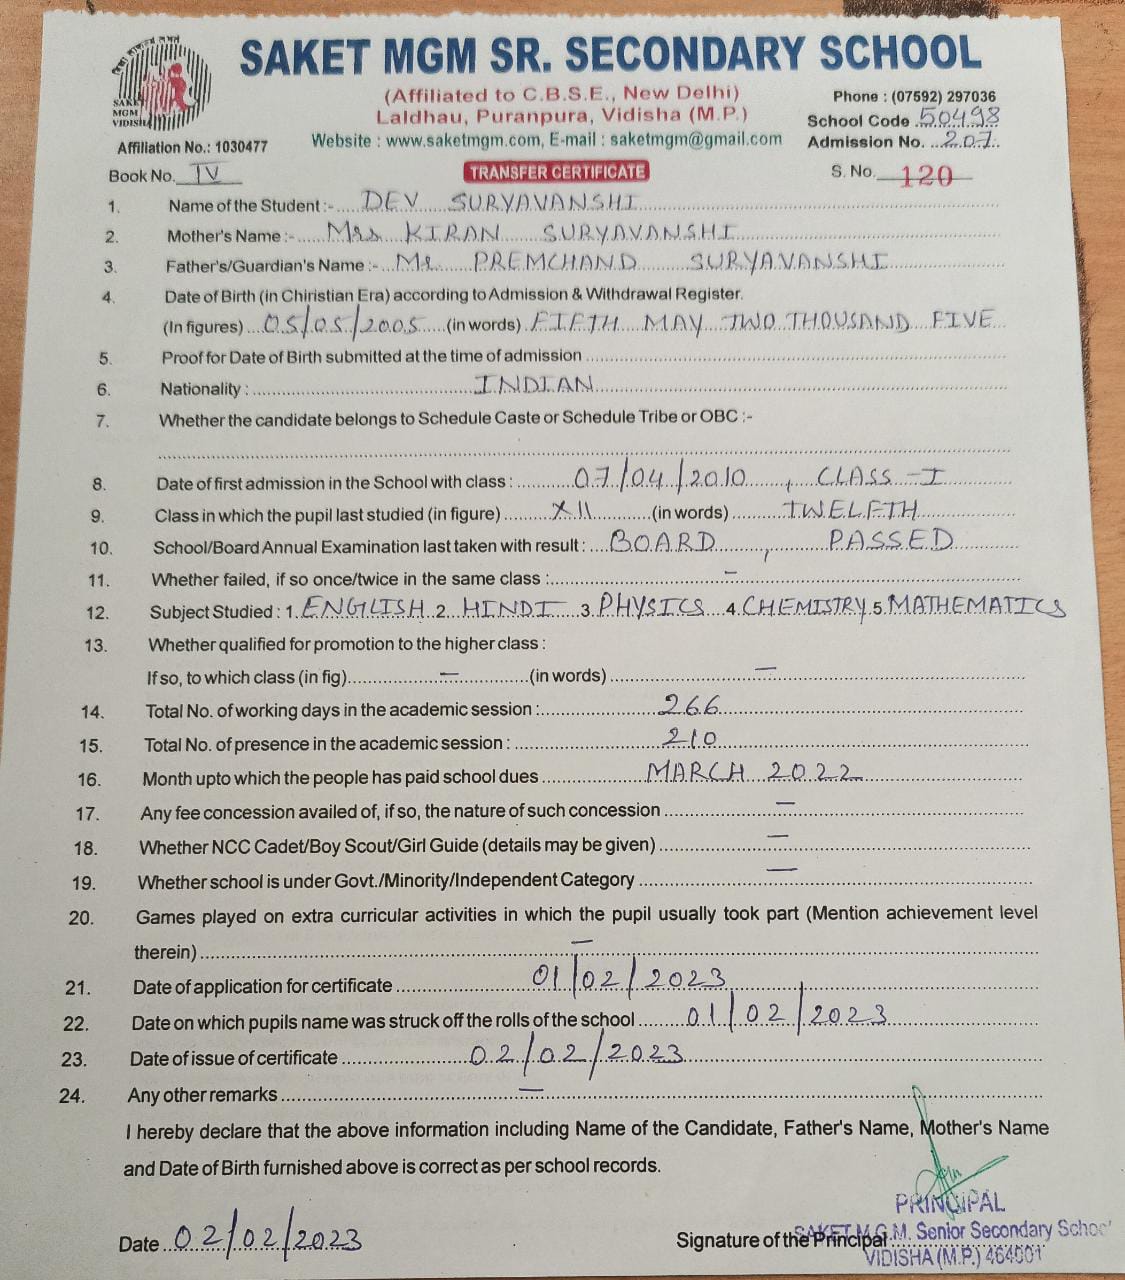 SAKET MGM SR. SECONDARY SCHOOL
SAKET
MGM
VIDISHA
(Affiliated to C.B.S.E., New Delhi)
Laldhau, Puranpura, Vidisha (M.P.)
Website : www.saketmgm.com, E-mail : saketmgm@gmail.com
Phone : (07592) 297036
School Code 50498
Admission No. 207
Affiliation No.: 1030477
Book No. IV
TRANSFER CERTIFICATE
S. No. 120
1. Name of the Student :- DEV SURYAVANSHI
2. Mother's Name :- Mrs KIRAN SURYAVANSHI
3. Father's/Guardian's Name :- Mr. PREMCHAND SURYAVANSHI
4. Date of Birth (in Chiristian Era) according to Admission & Withdrawal Register.
(In figures) 05/05/2005 (in words) FIFTH MAY TWO THOUSAND FIVE
5. Proof for Date of Birth submitted at the time of admission
6. Nationality : INDIAN
7. Whether the candidate belongs to Schedule Caste or Schedule Tribe or OBC :-
8. Date of first admission in the School with class : 07/04/2010, CLASS - I
9. Class in which the pupil last studied (in figure) XII (in words) TWELFTH
10. School/Board Annual Examination last taken with result : BOARD, PASSED
11. Whether failed, if so once/twice in the same class : -
12. Subject Studied : 1. ENGLISH 2. HINDI 3. PHYSICS 4. CHEMISTRY 5. MATHEMATICS
13. Whether qualified for promotion to the higher class :
If so, to which class (in fig) - (in words) -
14. Total No. of working days in the academic session : 266
15. Total No. of presence in the academic session : 210
16. Month upto which the people has paid school dues MARCH 2022
17. Any fee concession availed of, if so, the nature of such concession -
18. Whether NCC Cadet/Boy Scout/Girl Guide (details may be given) -
19. Whether school is under Govt./Minority/Independent Category -
20. Games played on extra curricular activities in which the pupil usually took part (Mention achievement level
therein) -
21. Date of application for certificate 01/02/2023
22. Date on which pupils name was struck off the rolls of the school 01/02/2023
23. Date of issue of certificate 02/02/2023
24. Any other remarks -
I hereby declare that the above information including Name of the Candidate, Father's Name, Mother's Name
and Date of Birth furnished above is correct as per school records.
PRINCIPAL
Date 02/02/2023
Signature of the Principal
SAKET M.G.M. Senior Secondary School
VIDISHA (M.P.) 464001